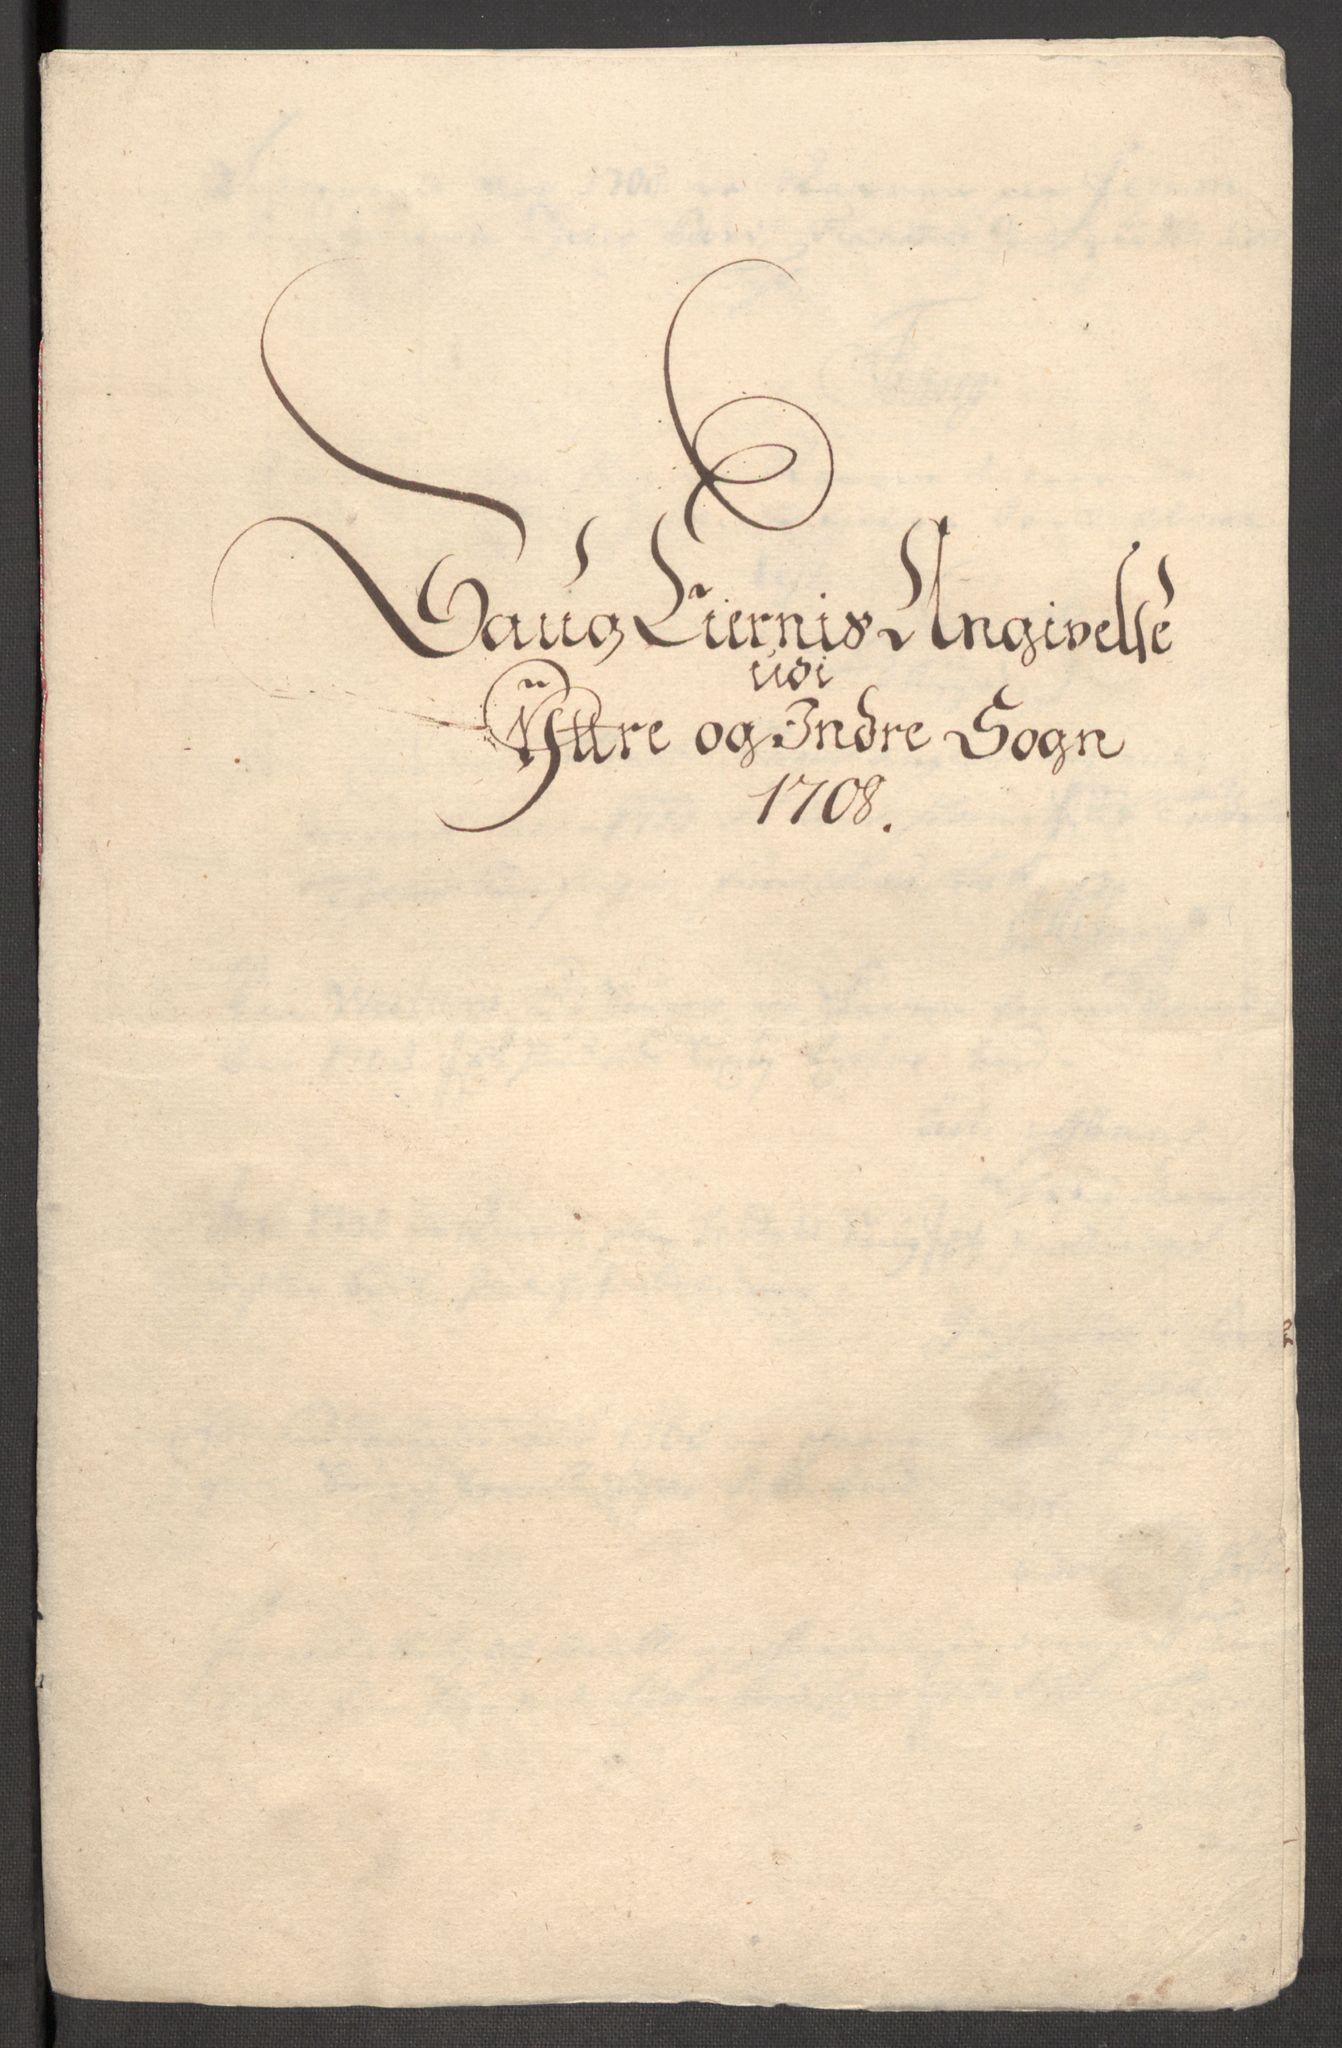 Saug Eiernis Angivelse
udi
Ÿttre og Indre Sogn
1708.